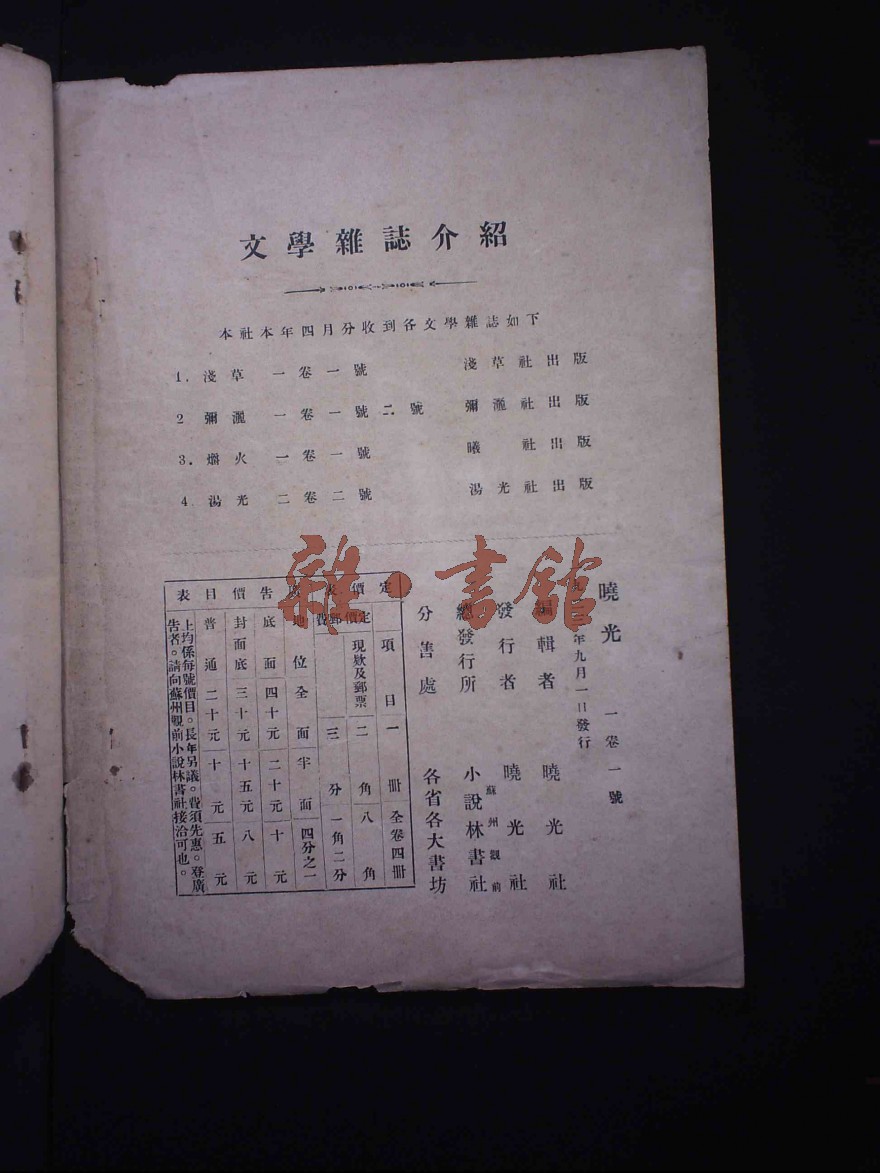 文學雜誌介紹
本社本年四月分收到各文學雜誌如下
1. 淺草 一卷一號 淺草社出版
2 彌灑 一卷一號二號 彌灑社出版
3. 爝火 一卷一號 曦社出版
4. 湯光 二卷二號 湯光社出版
曉光 一卷一號
年九月一日發行
編輯者 曉光社
發行者 曉光社
總發行所 蘇州觀前 小說林書社
分售處 各省各大書坊
定價表
項目 一冊 全卷四冊
定價 現欵及郵票 二角 八角
郵費 三分 一角二分
廣告價目表
地位 全面 半面 四分之一
底面 四十元 二十元 十元
封面底 三十元 十五元 八元
普通 二十元 十元 五元
上均係每號價目。長年另議。費須先惠。登廣
告者。請向蘇州觀前小說林書社接洽可也。
雜·書館